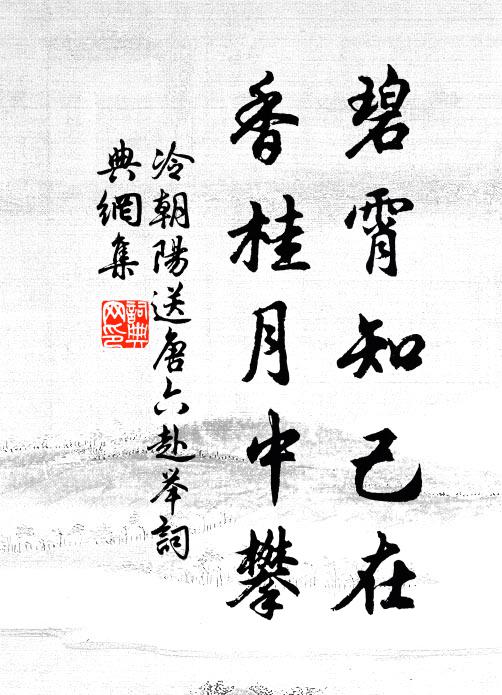 碧霄知己在
香桂月中攀
冷朝陽送唐六赴举詞
典網集
詞典
网印